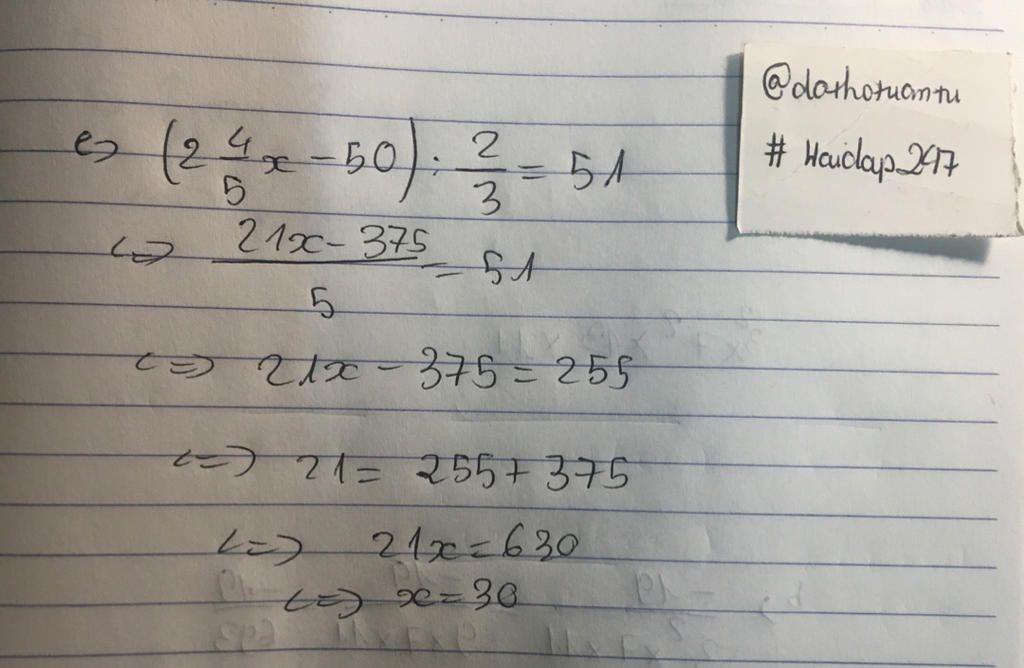 e) (2 4/5 x - 50) : 2/3 = 51
<=> (21x - 375)/5 = 51
<=> 21x - 375 = 255
<=> 21 = 255 + 375
<=> 21x = 630
<=> x = 30
# Hoidap247